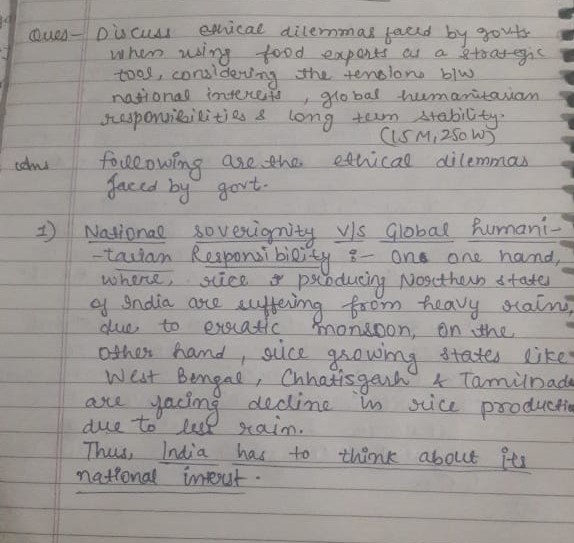 Ques- Discuss ethical dilemmas faced by govts
when using food exports as a strategic
tool, considering the tensions b/w
national interests, global humanitarian
responsibilities & long term stability.
(15M, 250W)
Ans following are the ethical dilemmas
faced by govt.
1) National soverignity v/s Global humani-
-tarian Responsibility :- One one hand,
where, rice producing Northern states
of India are suffering from heavy rains,
due to erratic monsoon, on the
other hand, rice growing states like
West Bengal, Chhatisgarh & Tamilnadu
are facing decline in rice production
due to less rain.
Thus, India has to think about its
national interst.